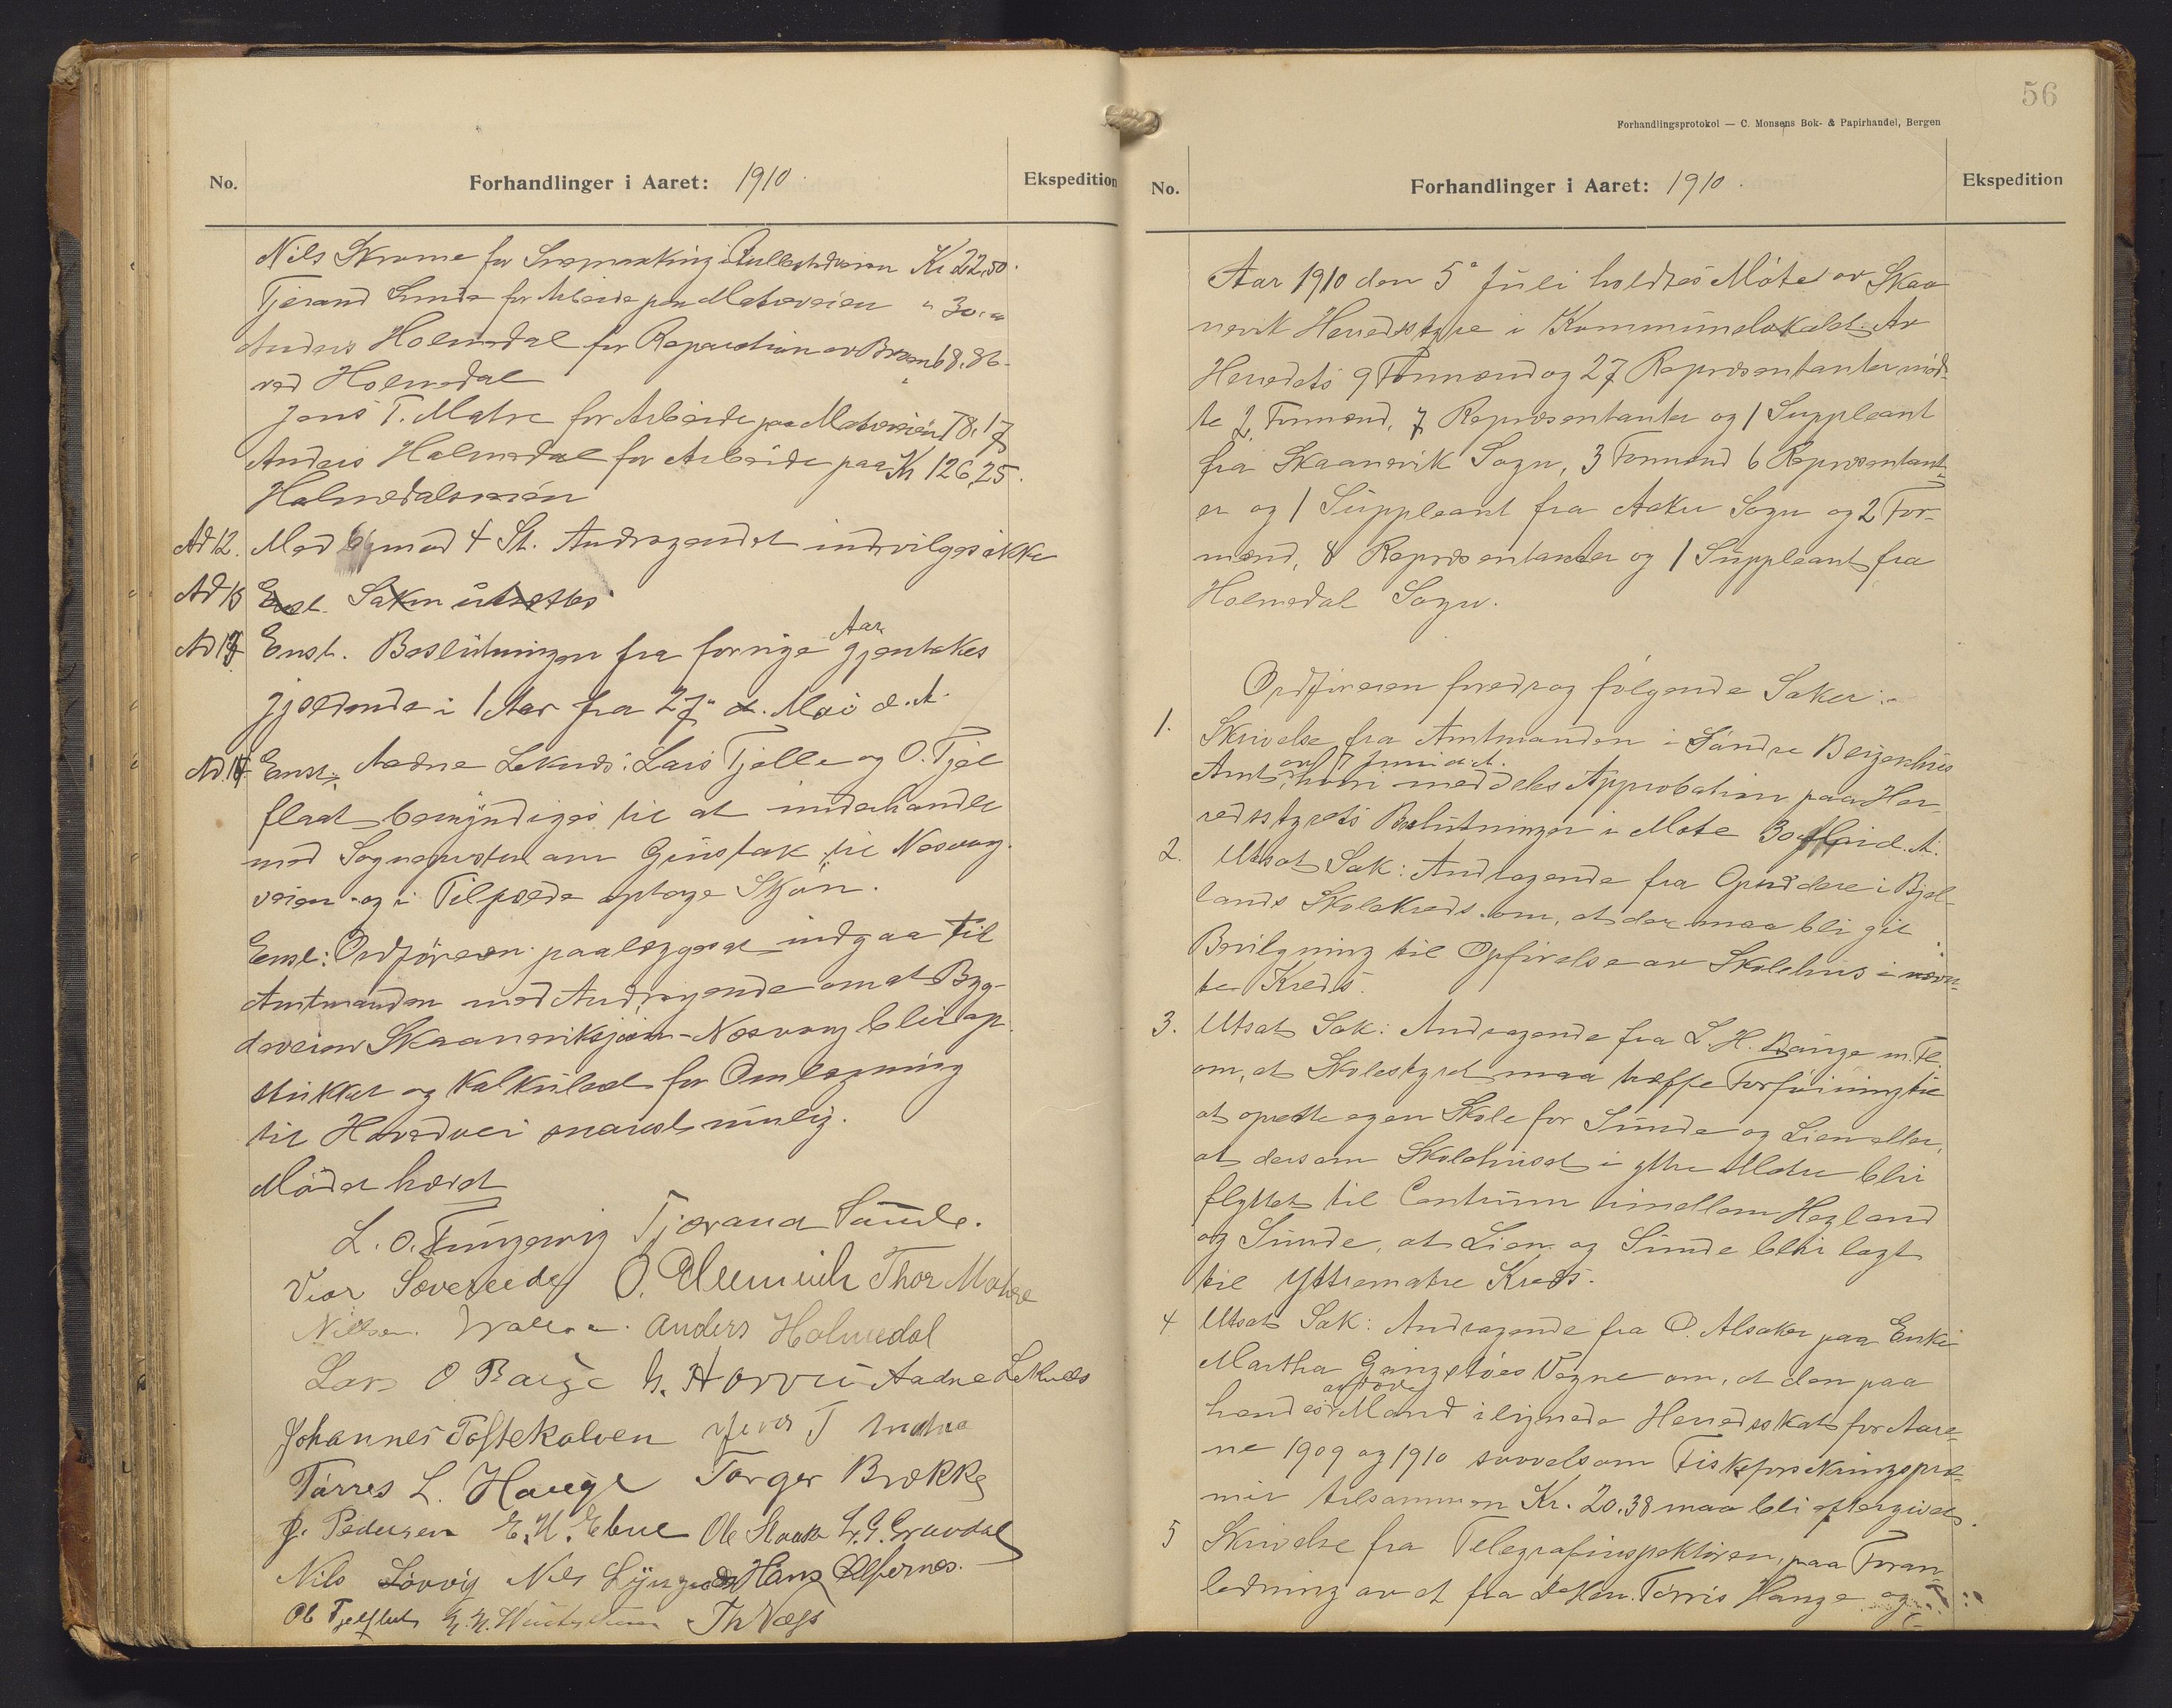 No.
Forhandlinger i Aaret: 1910.
Ekspedition
Nils Skrome for Kr 22,50.
Tjerand Sunde for Arbeide paa Matreveien " 30. "
Anders Holmedal for Reparation av 68.86-
ved Holmedal
Jens T. Matre for Arbeide paa Matreveien 78,17
Anders Holmedal for Arbeide paa Kr 126,25.
Holmedalsveien
Ad 12. Med mod 4 St. Andragendet indvilges ikke
Ad 13 Enst. Saken utsættes
Ad 13 Enst. Beslutningen fra forrige Aar gjentakes
gjældende i 1 Aar fra 27de Mai d. A.
Ad. 14 Enst: Aadne Leknes: Lars Tjelle og O. Tjel
flaat bemyndiges til at underhandle
med Sognepresten om Grustak til Nesvag.
veien og i Tilfælde optage Skjön.
Enst: Ordföreren paalægges at indgaa til
Amtmanden med Andragende om at Byg-
deveien Skaaneviksjöen - Nesvaag blir op
stukket og kalkulert for Omlægning
til Hovedvei snarest mulig.
Mödet hævet
L. O. Tungesvig Tjerand Sunde.
Viar Sævereide O. Thor Matre
Nielsen. Anders Holmedal
Lars O Bauge Aadne Leknes
Johannes Toftekalven Jens T Matre
Törres L. Hauge Torger Brekke
J. Pedersen E. N. Ebne Ole L. G. Grindal
Nils Lövvig Nils Hans Alfernes.
O. Tjelflaat Th Næss
56
Forhandlingsprotokol — C. Monsens Bok- & Papirhandel, Bergen
No.
Forhandlinger i Aaret: 1910.
Ekspedition
Aar 1910 den 5e Juli holdtes Möte av Skaa
nevik Herredsstyre i Kommunelokalet. Av
Herredets 9 Formænd og 27 Repræsentanter mød-
te 2 Formænd, 7 Repræsentanter og 1 Suppleant
fra Skaanevik Sogn, 3 Formænd 6 Repræsentant-
er og 1 Suppleant fra Aakre Sogn og 2 For-
mænd, 8 Repræsentanter og 1 Suppleant fra
Holmedal Sogn.
Ordföreren foredrog følgende Saker:-
1. Skrivelse fra Amtmanden i Söndre Bergenhus
Amt, av 7 Juni d. A. hvori meddeles Approbation paa Her-
redsstyrets Beslutninger i Møte 30 Mai d. A.
2. Utsat Sak: Andragende fra Opsiddere i Bjel-
lands Skolekreds om, at der maa bli git
Bevilgning til Opförelse av Skolehus i nævn-
te Kreds.
3. Utsat Sak: Andragende fra L. H. Bauge m. Fl.
om, at Skolestyret maa træffe Forföining til
at oprette egen Skole for Sunde og Lien eller,
at dersom Skolehuset i ytre Matre blir
flyttet til Centrum imellem Hegland
og Sunde, at Lien og Sunde blir lagt
til Yttrematre Kreds.
4 Utsat Sak: Andragende fra O. Alsaker paa Enke
Martha Gangstöes Vegne om, at den paa
hendes avdöde Mand ilignede Herredsskat for Aare-
ne 1909 og 1910 saavelsom Fiskeforsikringspræ-
mie tilsammen Kr. 20.38 maa bli eftergivet.
5 Skrivelse fra Telegrafinspektören, paa Foran-
ledning av et fra Törris Hauge og